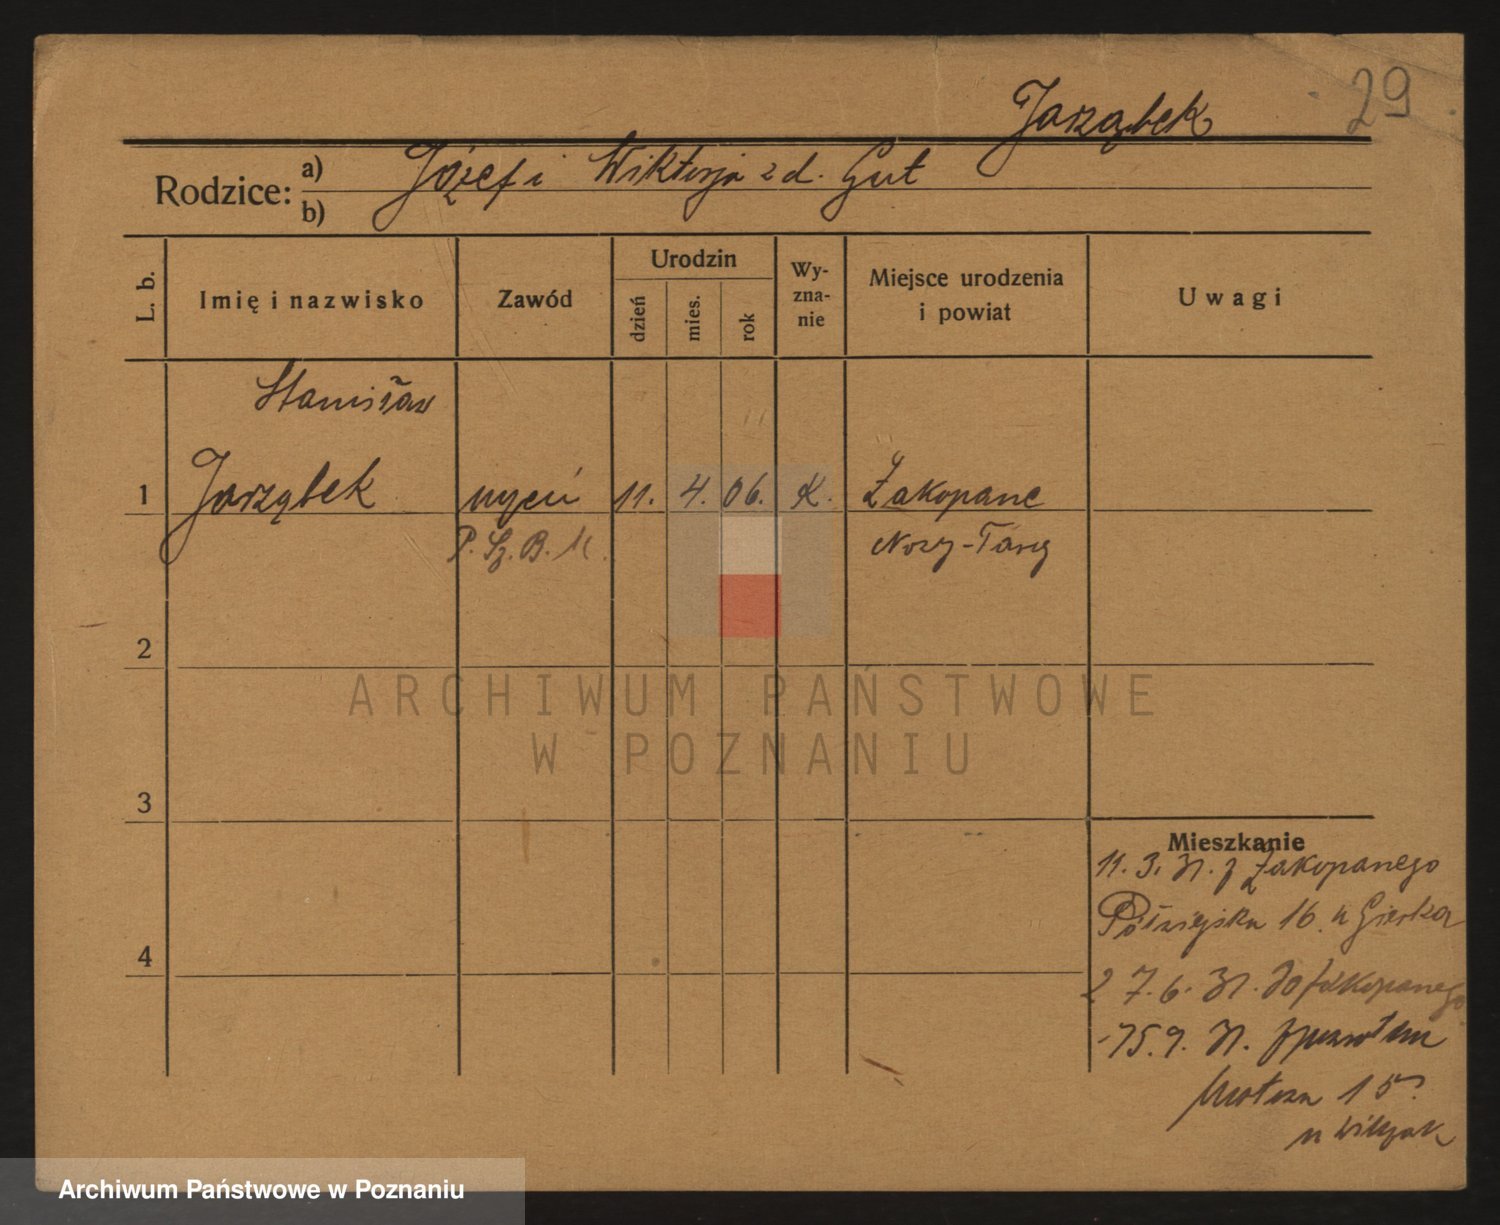 29
Jarząbek
Rodzice:
a) Józef i Wiktorja z d. Gut
b)
L. b.
Imię i nazwisko
Zawód
Urodzin
dzień
mies.
rok
Wy-
zna-
nie
Miejsce urodzenia
i powiat
Uwagi
Stanisław
1 Jarząbek 11. 4. 06. K. Zakopane
P. Sz. B.
Nowy-Targ
2
3
4
Mieszkanie
11. 3. 31. z Zakopanego
16. u
7. 6. 31. do Zakopanego
15. 9. 31. z powrotem
15
u
ARCHIWUM PAŃSTWOWE
W POZNANIU
Archiwum Państwowe w Poznaniu